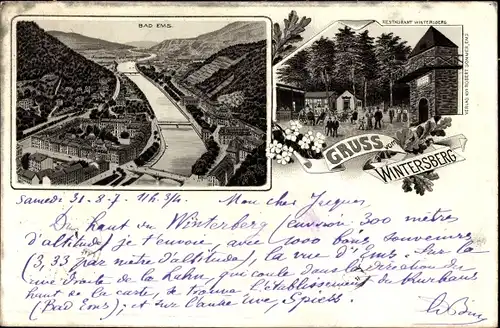 BAD EMS.
RESTAURANT WINTERSBERG
VERLAG VON HUBERT SOMMER, EMS
GRUSS vom
WINTERSBERG
Samedi 31-8-7. 11h 3/4. Mon cher Jacques
Du haut du Winterberg (environ 300 mètres
d'altitude) je t'envoie, avec 1000 bons souvenirs
(3,33 par mètre d'altitude), la vue d'Ems. Sur la
rive droite de la Lahn, qui coule dans la direction du
haut de la carte, se trouve l'établissement du Kurhaus
(Bad Ems); et sur l'autre rive, Spiess.